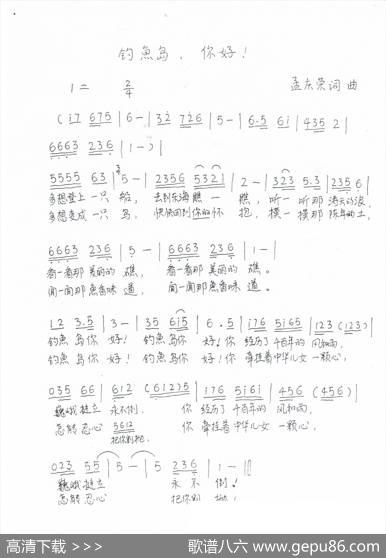 钓魚岛，你好！
1= 2/4 孟庆荣词曲
(i7 675 | 6- | 32 726 | 5- | 6·5 6i | 435 2 |
6663 236 | 1-) |
5555 63 | 5- | 2356 532 | 2- | 323 5·3 | 2356 |
多想登上一只船， 去到东海瞧一瞧，听一听那涛天的浪，
多想变成一只鸟， 快快回到你的怀抱，摸一摸那陈年的土，
6663 236 | 5- | 6663 236 | 1- |
看一看那美丽的礁， 看一看那美丽的礁。
闻一闻那魚香味道， 闻一闻那魚香味道。
12 3·5 | 3- | 35 6i5 | 6·5 | i76 5i65 | 123 (123) |
钓魚岛你好！钓魚岛你好！你经历了千百年的风和雨，
钓魚岛你好！钓魚岛你好！你牵挂着中华儿女一颗心，
035 66 | 612 (612)5 | 176 5i6i | 456 (456) |
巍峨挺立永不倒， 你经历了千百年的风和雨，
怎能忍心 5612 你牵挂着中华儿女一颗心，
把你割抛，
023 55 | 5- | 5 236 | 1- ‖
巍峨挺立 永不倒！
怎能忍心 把你割抛！
高清下载 >>>
歌谱八六 www.gepu86.com